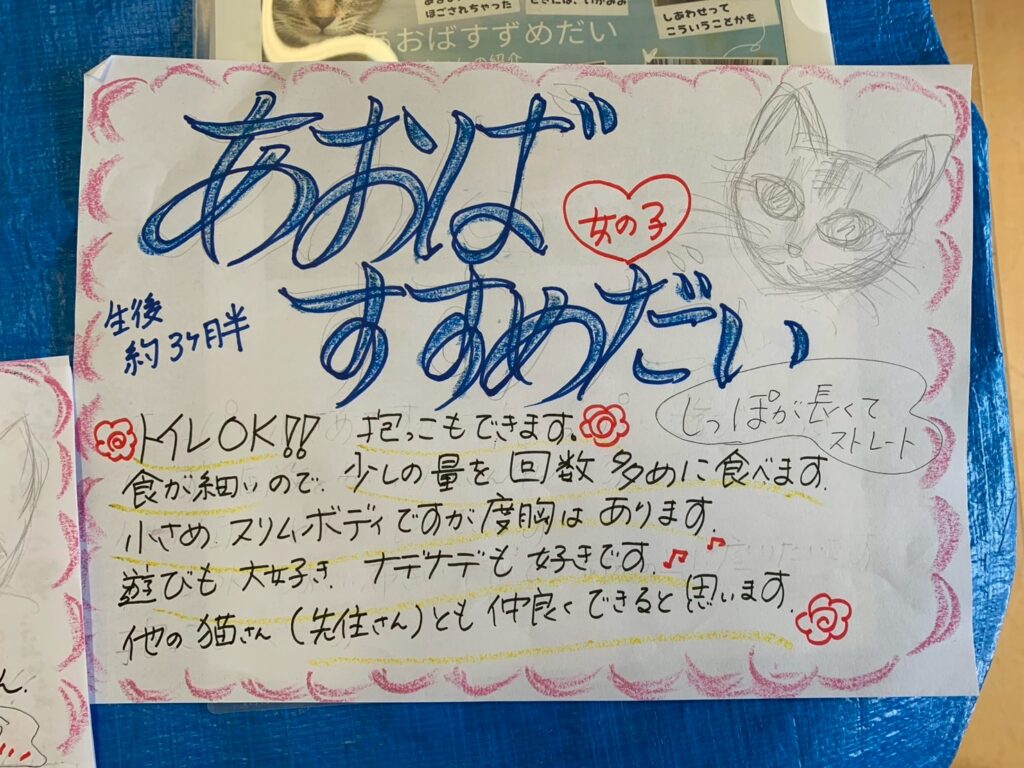 ほごされちゃった
しあわせって
こういうことかも
あおばすずめだい
あおば
女の子
すずめだい
生後
約3ヶ月半
しっぽが長くて
ストレート
トイレOK!! 抱っこもできます。
食が細いので、少しの量を回数多めに食べます。
小さめスリムボディですが度胸はあります。
遊びも大好き、ナデナデも好きです。♫♪
他の猫さん(先住さん)とも仲良くできると思います。
ん.